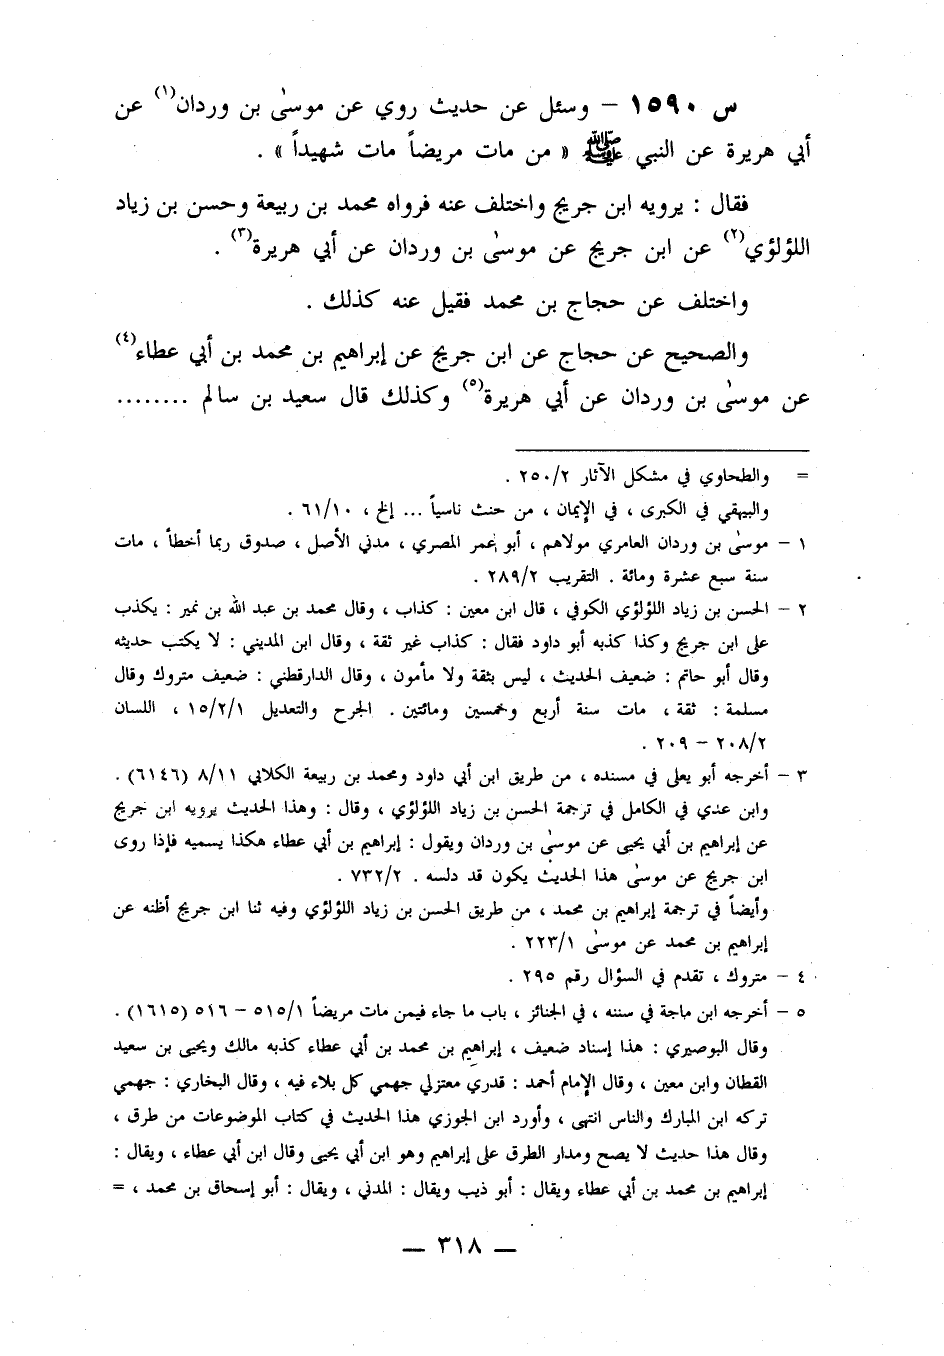 س ١٥٩٠ – وسئل عن حديث روي عن موسىٰ بن وردان(١) عن
أبي هريرة عن النبي ﷺ « من مات مريضاً مات شهيداً » .
فقال : يرويه ابن جريج واختلف عنه فرواه محمد بن ربيعة وحسن بن زياد
اللؤلؤي(٢) عن ابن جريج عن موسىٰ بن وردان عن أبي هريرة(٣) .
واختلف عن حجاج بن محمد فقيل عنه كذلك .
والصحيح عن حجاج عن ابن جريج عن إبراهيم بن محمد بن أبي عطاء(٤)
عن موسىٰ بن وردان عن أبي هريرة(٥) وكذلك قال سعيد بن سالم ........
= والطحاوي في مشكل الآثار ٢٥٠/٢ .
والبيهقي في الكبرى ، في الإيمان ، من حنث ناسياً ... إلخ ، ٦١/١٠ .
١ – موسىٰ بن وردان العامري مولاهم ، أبو عمر المصري ، مدني الأصل ، صدوق ربما أخطأ ، مات
سنة سبع عشرة ومائة . التقريب ٢٨٩/٢ .
٢ – الحسن بن زياد اللؤلؤي الكوفي ، قال ابن معين : كذاب ، وقال محمد بن عبد الله بن نمير : يكذب
على ابن جريج وكذا كذبه أبو داود فقال : كذاب غير ثقة ، وقال ابن المديني : لا يكتب حديثه
وقال أبو حاتم : ضعيف الحديث ، ليس بثقة ولا مأمون ، وقال الدارقطني : ضعيف متروك وقال
مسلمة : ثقة ، مات سنة أربع وخمسين ومائتين . الجرح والتعديل ١٥/٢/١ ، اللسان
٢٠٨/٢ – ٢٠٩ .
٣ – أخرجه أبو يعلى في مسنده ، من طريق ابن أبي داود ومحمد بن ربيعة الكلابي ٨/١١ (٦١٤٦) .
وابن عدي في الكامل في ترجمة الحسن بن زياد اللؤلؤي ، وقال : وهذا الحديث يرويه ابن جريج
عن إبراهيم بن أبي يحيى عن موسىٰ بن وردان ويقول : إبراهيم بن أبي عطاء هكذا يسميه فإذا روى
ابن جريج عن موسىٰ هذا الحديث يكون قد دلسه . ٧٣٢/٢ .
وأيضاً في ترجمة إبراهيم بن محمد ، من طريق الحسن بن زياد اللؤلؤي وفيه ثنا ابن جريج أظنه عن
إبراهيم بن محمد عن موسىٰ ٢٢٣/١ .
٤ – متروك ، تقدم في السؤال رقم ٢٩٥ .
٥ – أخرجه ابن ماجة في سننه ، في الجنائز ، باب ما جاء فيمن مات مريضاً ٥١٥/١ – ٥١٦ (١٦١٥) .
وقال البوصيري : هذا إسناد ضعيف ، إبراهيم بن محمد بن أبي عطاء كذبه مالك ويحيى بن سعيد
القطان وابن معين ، وقال الإمام أحمد : قدري معتزلي جهمي كل بلاء فيه ، وقال البخاري : جهمي
تركه ابن المبارك والناس انتهى ، وأورد ابن الجوزي هذا الحديث في كتاب الموضوعات من طرق ،
وقال هذا حديث لا يصح ومدار الطرق على إبراهيم وهو ابن أبي يحيى وقال ابن أبي عطاء ، ويقال :
إبراهيم بن محمد بن أبي عطاء ويقال : أبو ذيب ويقال : المدني ، ويقال : أبو إسحاق بن محمد ، =
— ٣١٨ —